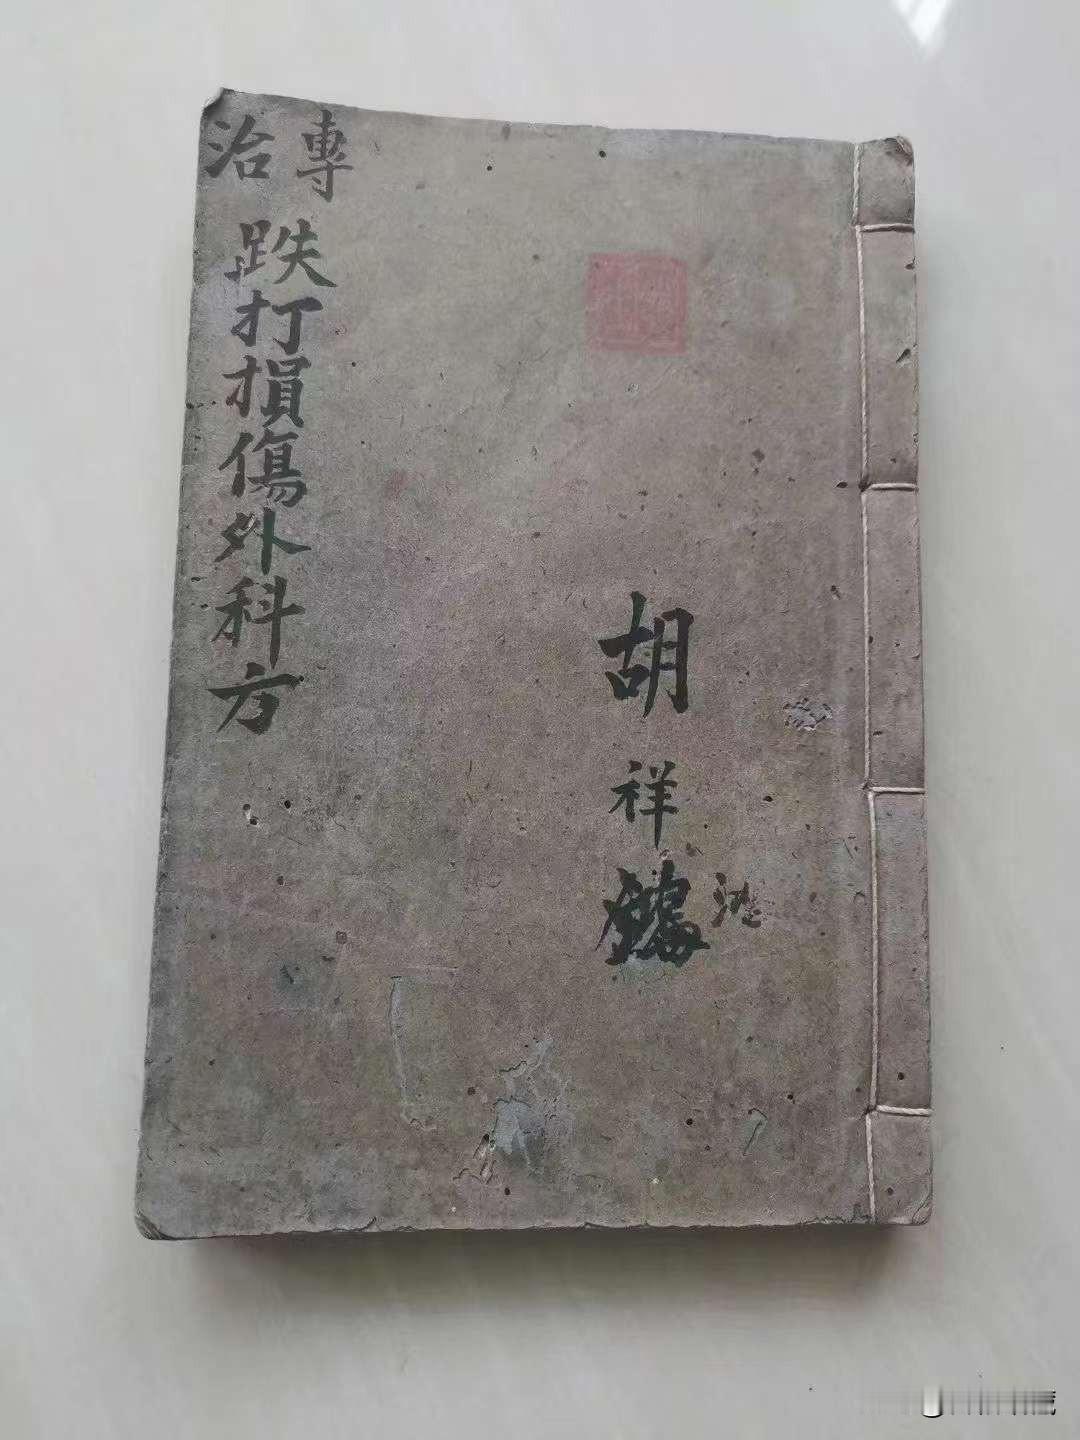 專治
跌打損傷外科方
胡祥